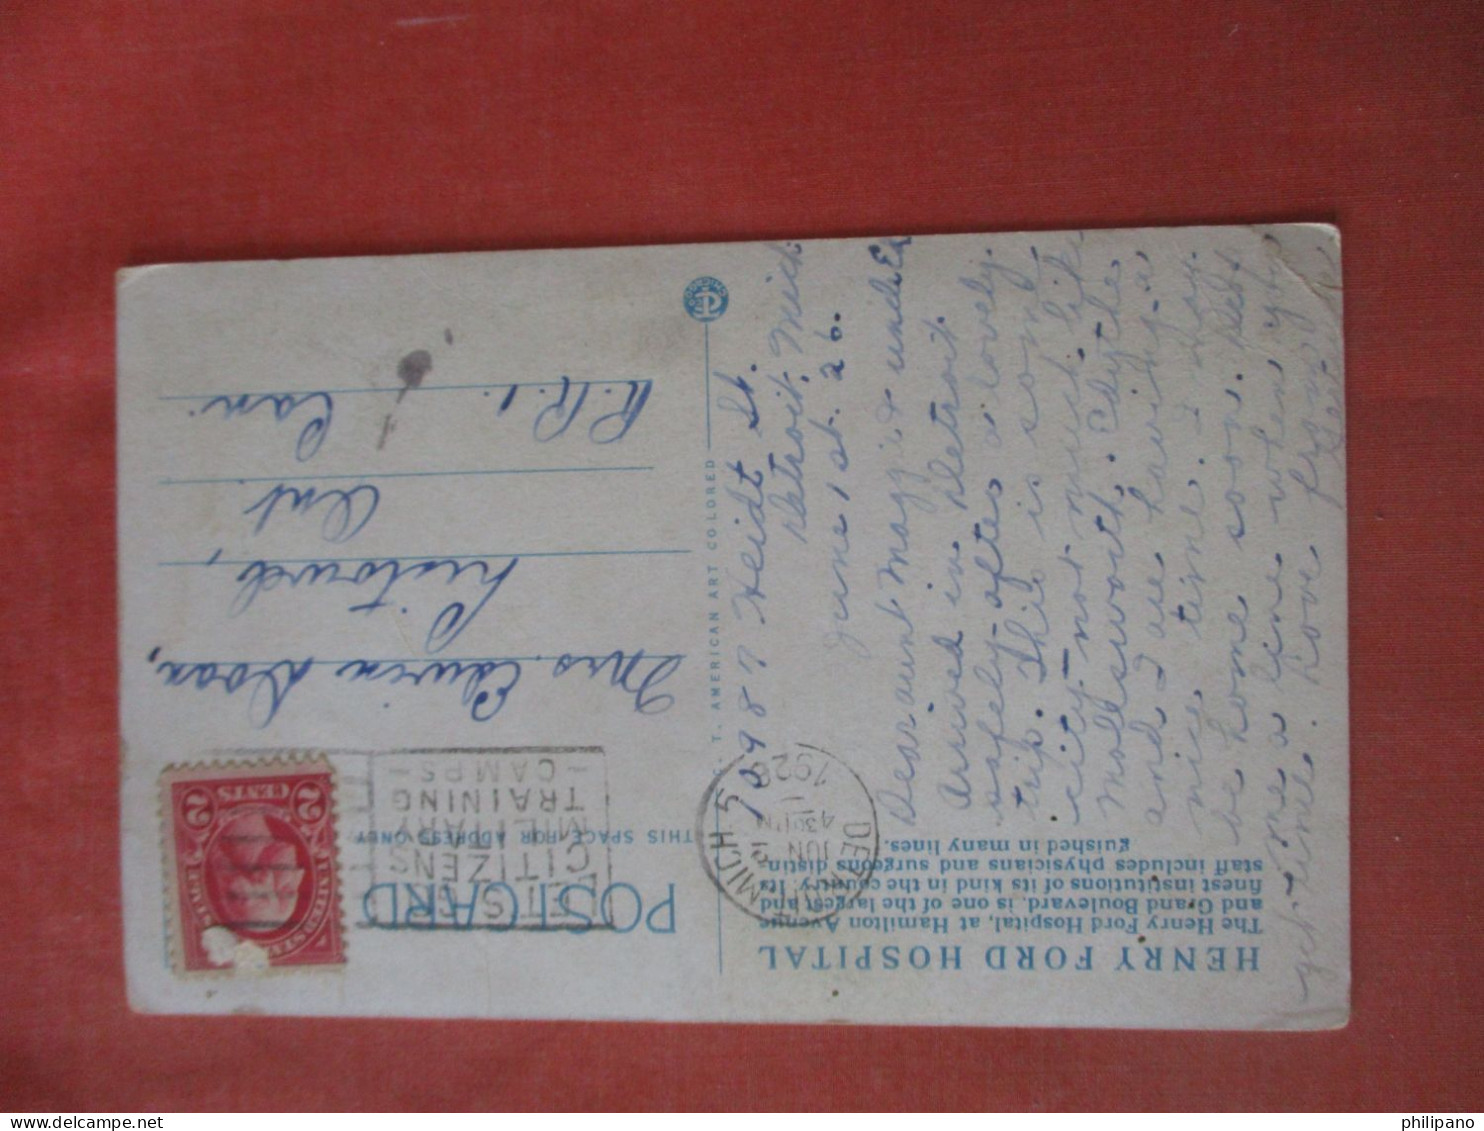 HENRY FORD HOSPITAL
The Henry Ford Hospital, at Hamilton Avenue
and Grand Boulevard, is one of the largest and
finest institutions of its kind in the country. Its
staff includes physicians and surgeons distin-
guished in many lines.
10987 Heidt St.
Detroit. Mich
June 1st. 26.
Dear aunt Maggie & uncle Ed
Arrived in Detroit
safely after a lovely
trip. This is some
city not much like
Mollsworth.
and I are having a
nice time. I may
be home soon. Drop
me a line when you
get time. Love from
C.T. AMERICAN ART COLORED
CHICAGO
POSTCARD
THIS SPACE FOR ADDRESS ONLY
DETROIT, MICH 5
JUN 1
430 PM
1926
LET'S GO
CITIZENS
MILITARY
TRAINING
-CAMPS-
UNITED STATES POSTAGE
2 CENTS 2
Mrs. Edwin Doan,
Listowel,
Ont.
R.R.1. Can.
philipano